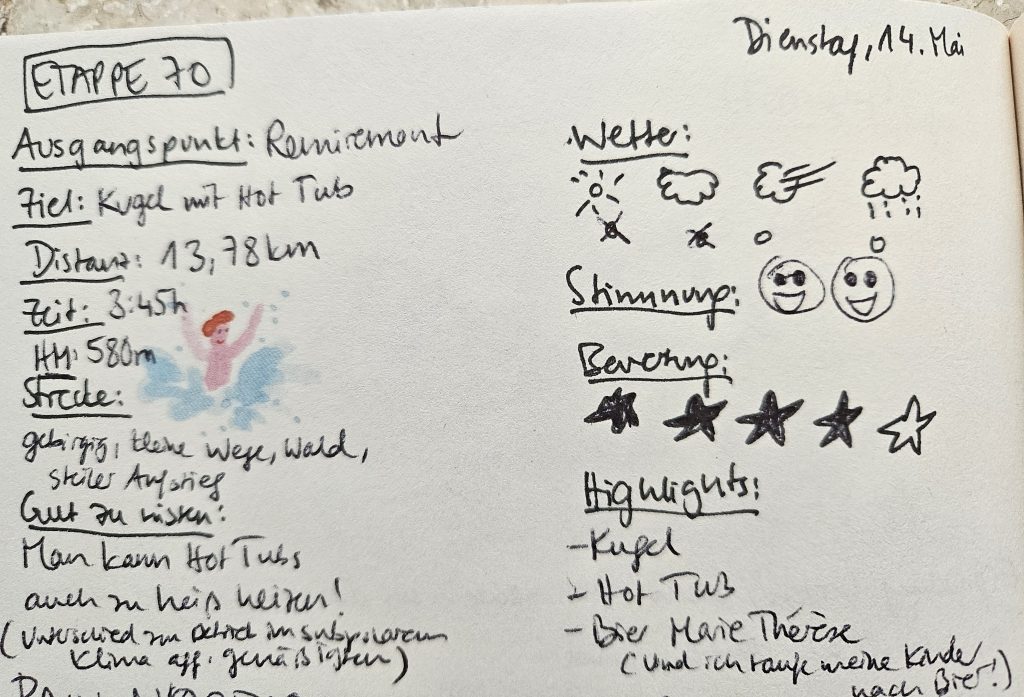 ETAPPE 70
Dienstag, 14. Mai
Ausgangspunkt: Remiremont
Ziel: Kugel mit Hot Tub
Distanz: 13,78km
Zeit: 3:45h
HM: 580m
Strecke:
gebirgig, kleine Wege, Wald,
steiler Aufstieg
Gut zu wissen:
Man kann Hot Tubs
auch zu heiß heizen!
(Unterschied zum im subpolarem
Klima gemäßigten)
Wetter:
Stimmung:
Bewertung:
Highlights:
- Kugel
- Hot Tub
- Bier Marie Thérèse
(Und ich taufe meine Kinder
nach Bier!)